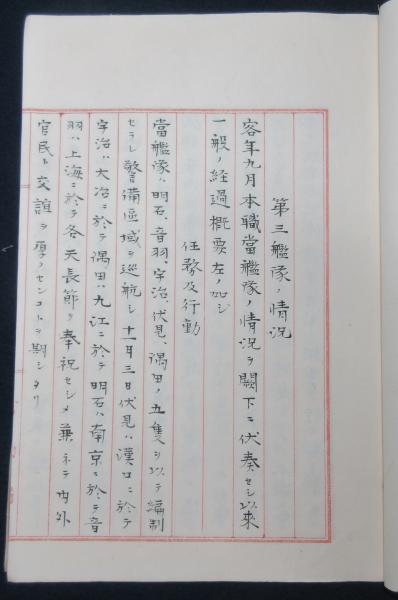 第三艦隊ノ情況
客年九月本職當艦隊ノ情況ヲ闕下ニ伏奏セシ以來
一般ノ経過概要左ノ如シ
任務及行動
當艦隊ハ明石、音羽、宇治、伏見、隅田ノ五隻ヲ以テ編制
セラレ警備區域ヲ巡航シ十一月三日伏見ハ漢口ニ於テ
宇治ハ大冶ニ於テ隅田ハ九江ニ於テ明石ハ南京ニ於テ音
羽ハ上海ニ於テ各天長節ヲ奉祝セシメ兼ネテ内外
官民ト交誼ヲ厚クセンコトヲ期シタリ